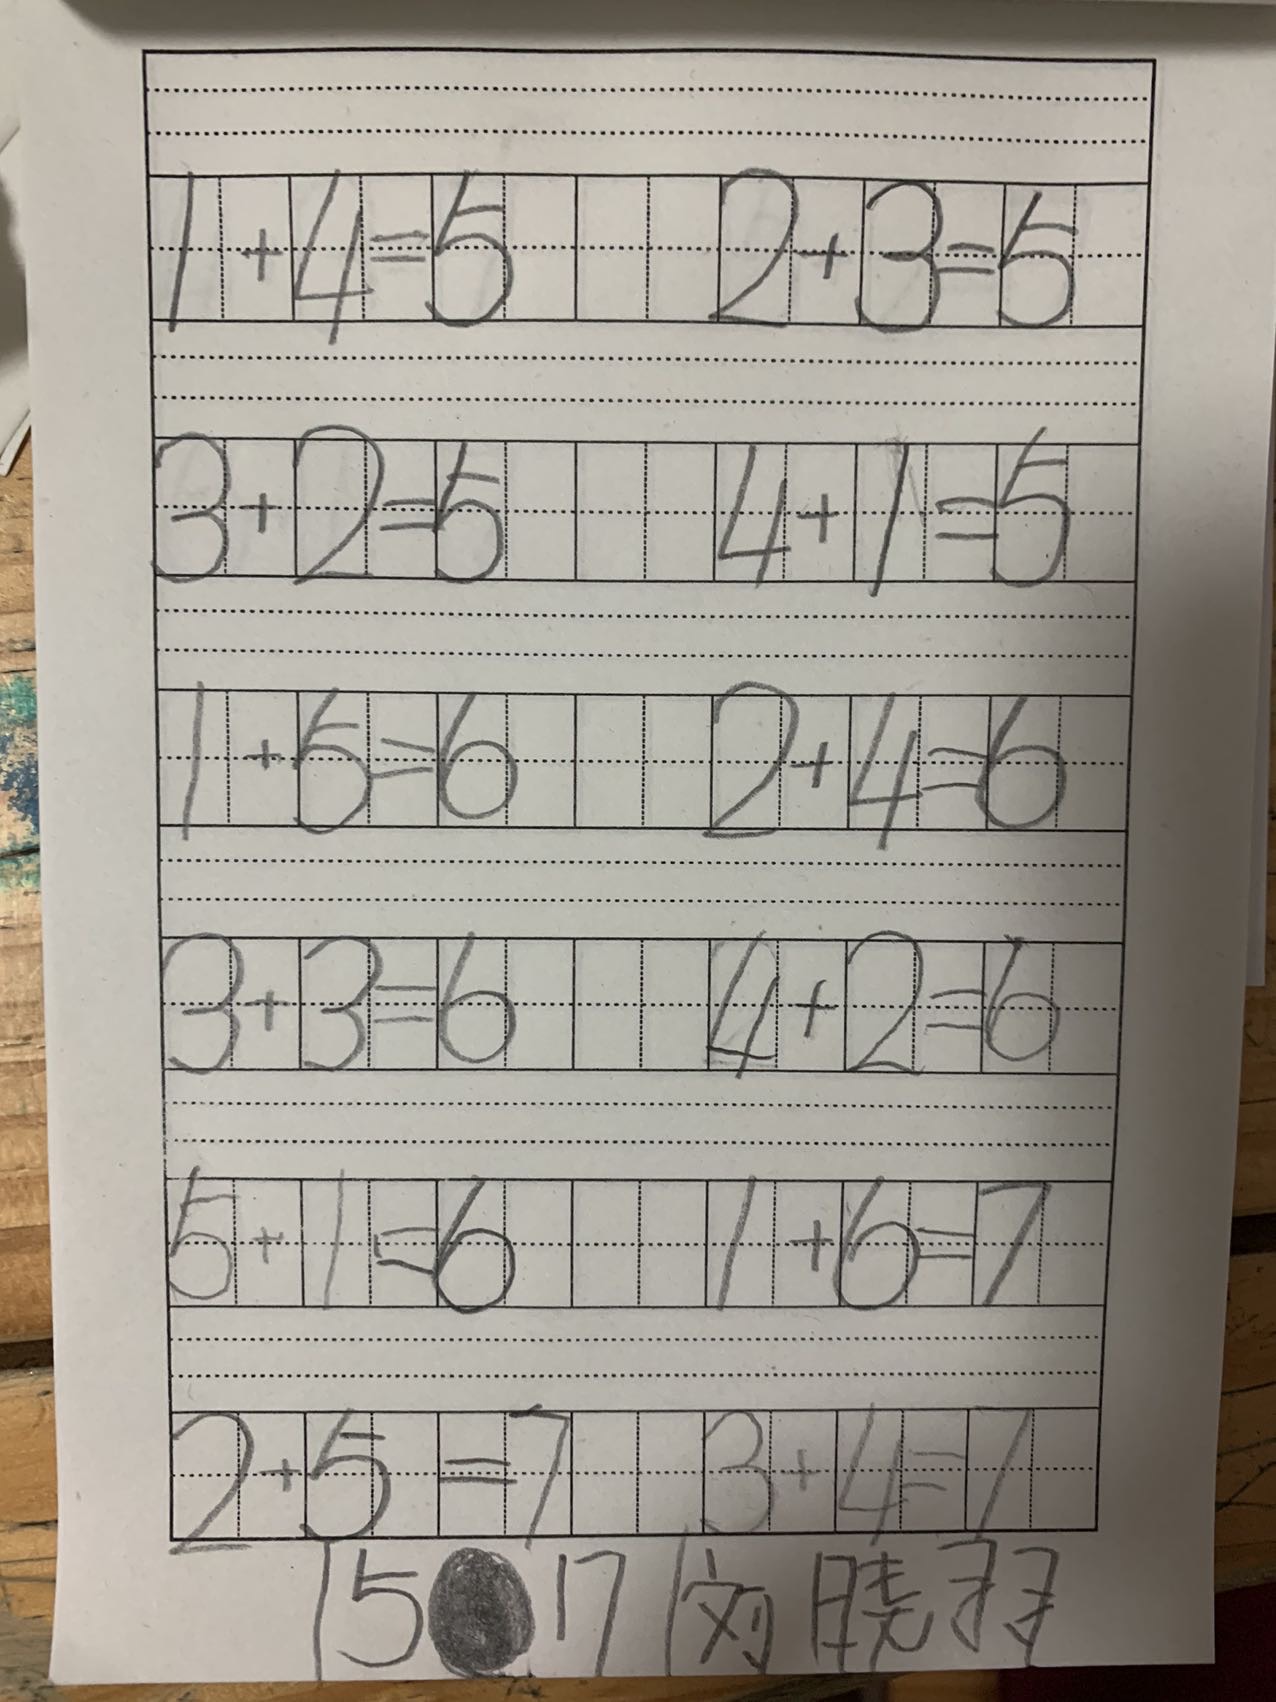 1+4=5 2+3=5
3+2=5 4+1=5
1+5=6 2+4=6
3+3=6 4+2=6
5+1=6 1+6=7
2+5=7 3+4=7
15 17 刘晓羽